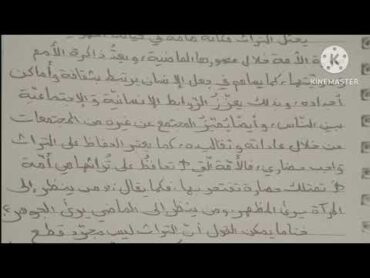 يمثل التراث مكانة هامة في حياة
الأمة خلال عصورها الماضية، ويعد ذاكرة الأمم
كما يساهم في جعل الإنسان يرتبط بثقافة وأماكن
أجداده، وبذلك يعزز الروابط الإنسانية والاجتماعية
بين الناس، وأيضا يميز المجتمع عن غيره من المجتمعات
من خلال عاداته وتقاليده، كما يعتبر الحفاظ على التراث
واجب حضاري، فالأمة التي لا تحافظ على تراثها هي أمة
لا تمتلك حضارة تفتخر بها، فكما يقال: ومن ينظر إلى
المرآة يرى المظهر ومن ينظر إلى الماضي يرى الجوهر؟
ختاما يمكن القول أن التراث ليس مجرد قطع
KINEMASTER